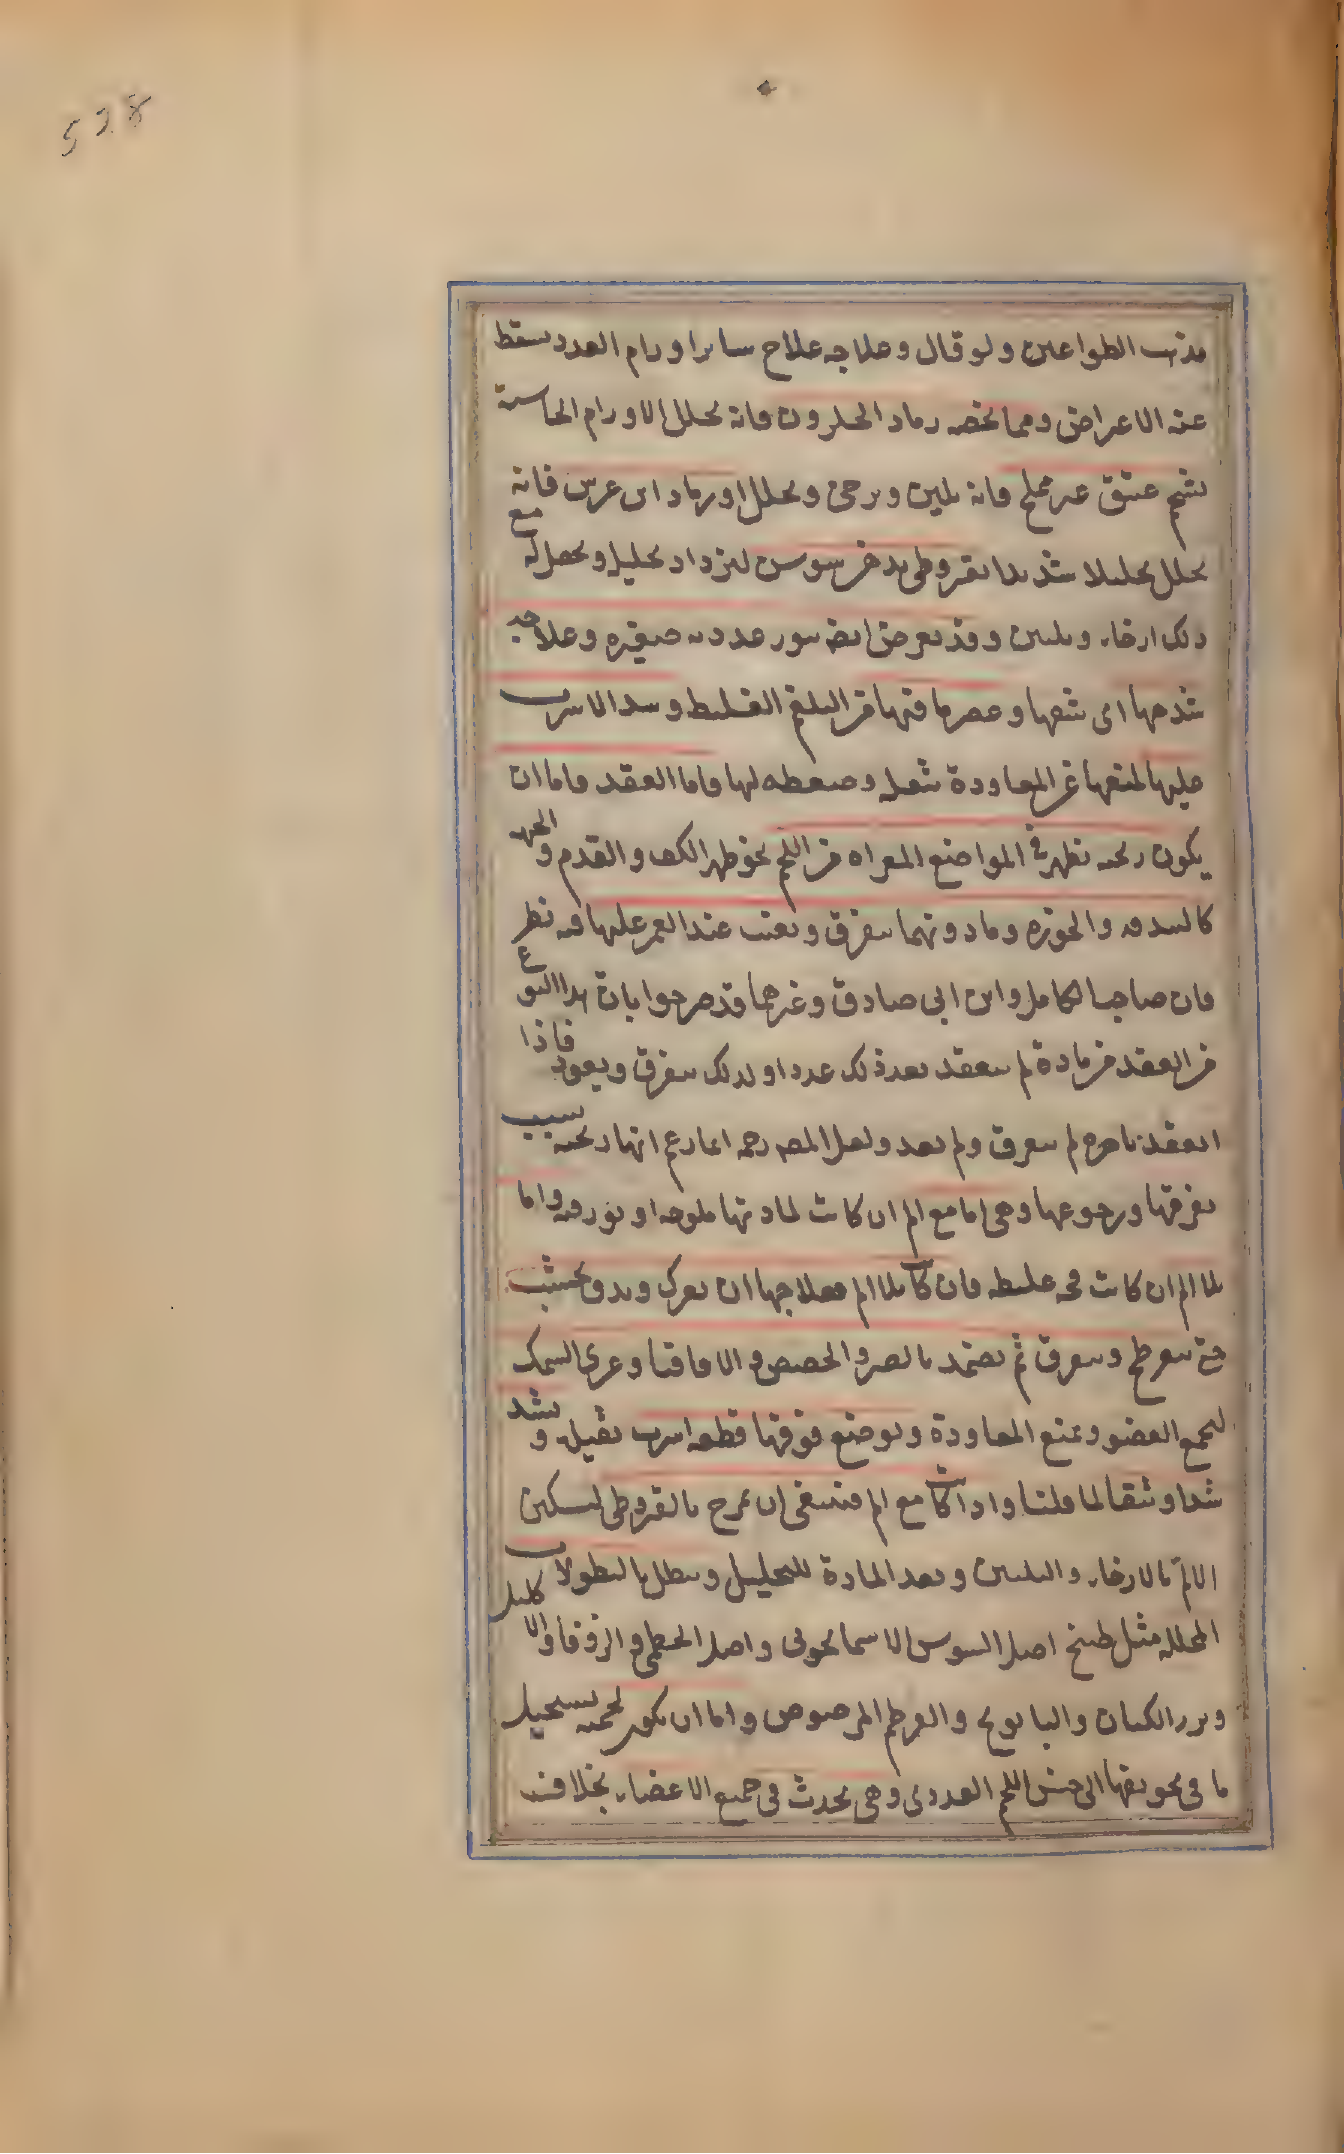 528
مذهب الطواعين ولو قال وعلاجه علاج سائر اورام الغدد سقط
عنه الاعراض ومما يخصه رماد الحلزون فانه يحلل الاورام الجاسية
بشحم عتيق غير مملح فانه يلين ويرخى ويحلل او رماد ابن عرس فانه
يحلل تحليلا شديدا بقيروطى بدهن سوسن ليزداد تحليله ويحصل له مع
ذلك ارخاء وتليين وقد يعرض ايضا بثور غددية صغيرة وعلاجه
شدخها اى شقها وعصر ما فيها من البلغم الغليظ وشد الاسرب
عليها لمنعها عن المعاودة بثقله وضغطه لها واما العقد فاما ان
يكون ريحية تظهر فى المواضع المعراة من اللحم نحو ظهر الكف والقدم والجبهة
كالبندقة والجوزة وما دونهما يتفرق ويغيب عند الغمز عليها فيه نظر
فان صاحب الكامل وابن ابى صادق وغيرهما قد صرحوا بان هذا النوع
من العقد من مادة لم ينعقد بعد ذلك غددا ولذلك يتفرق ويعود فاذا
انعقدت بآخره لم يتفرق ولم يعد ولعل المصـ رحمه انما زعم انها ريحية بسبب
تفرقها ورجوعها وهى اما مع الم ان كانت لمادتها ملوحة او بورقية واما
بلا الم ان كانت فجة غليظة فان كانت بلا الم فعلاجها ان يعرك ويدق بخشب
حتى يتفرطح ويتفرق ثم يضمد بالصبر والحضض والاقاقيا وغرى السمك
لتجمع العضو وتمنع المعاودة ويوضع فوقها قطعة اسرب ثقيلة ويشد
شدا وثيقا لما قلنا واذا كانت مع الم فينبغى ان يمرخ بالقيروطى لتسكين
الالم بالارخاء والتليين وتعد المادة للتحليل وينطل بالنطولات
المحللة مثل طبيخ اصل السوس الاسمانجونى واصل الخطمى والزوفا والاكليل
وبزر الكتان والبابونج والقرطم المرضوض واما ان يكون لحمية يستحيل
ما فى تجويفها الى جنس اللحم الغددى وهى يحدث فى جميع الاعضاء بخلاف